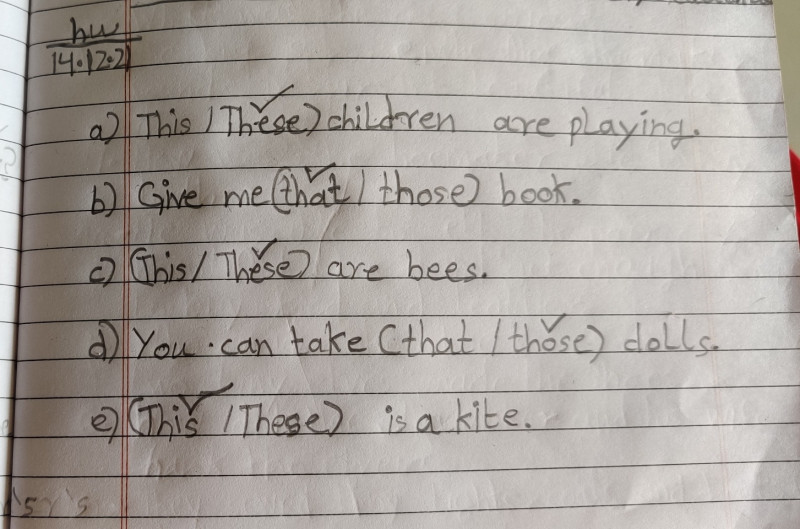 hw
14.12.21
a) This / These) children are playing.
b) Give me (that / those) book.
c) (This / These) are bees.
d) You can take (that / those) dolls.
e) (This / These) is a kite.